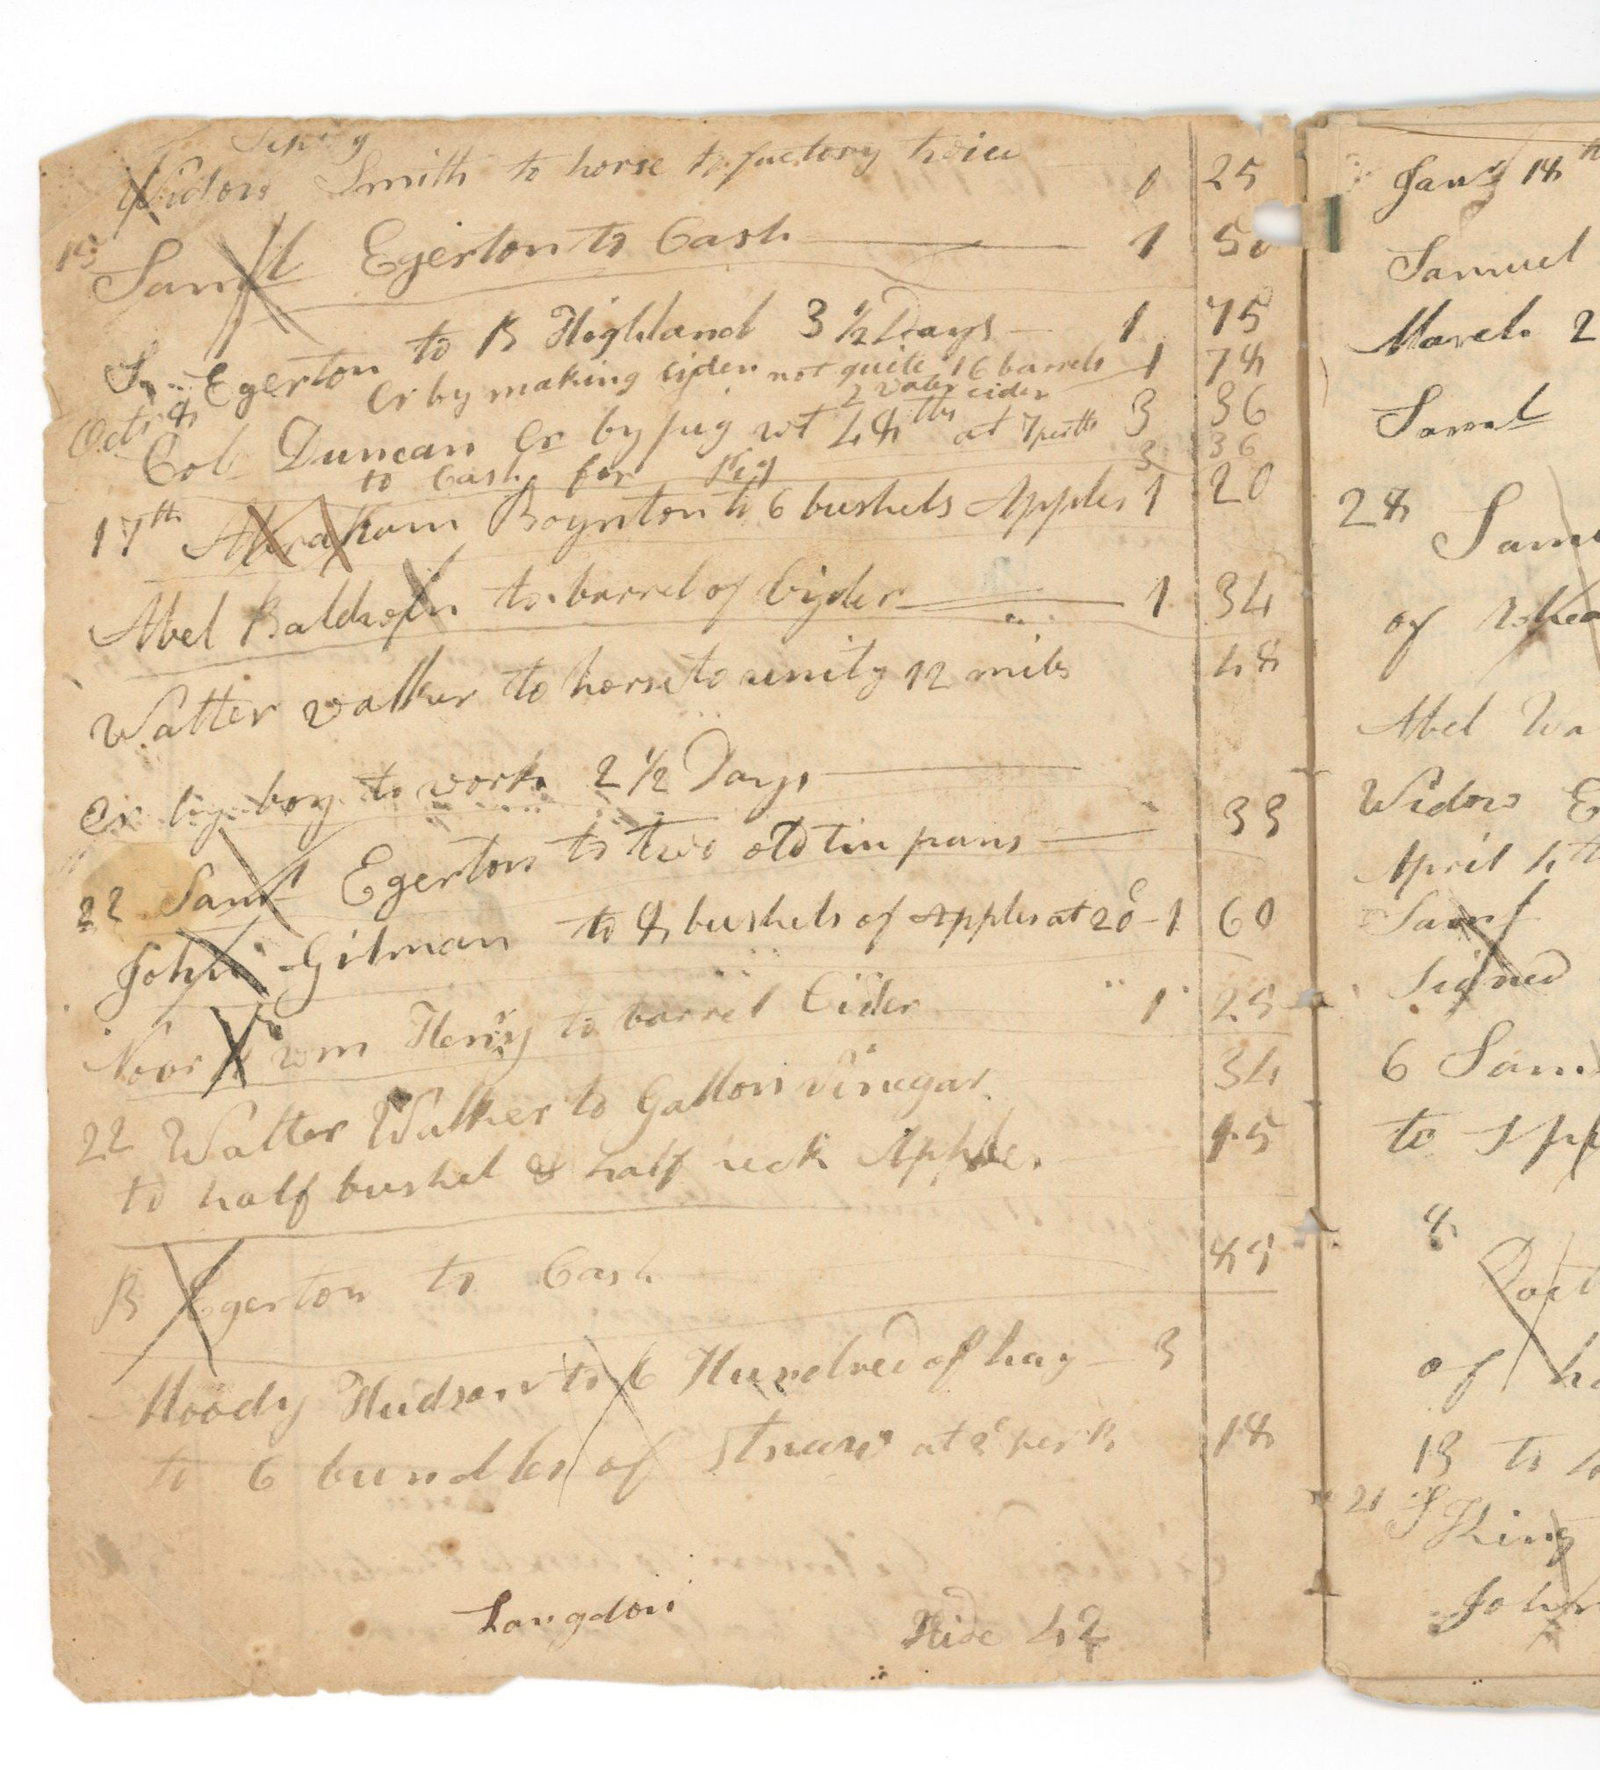 Widow Smith to horse to factory twice 1 25
15 Saml Egerton to Cash 1 50
Egerton to B Highland 3 1/2 Days 1 75
Cr by making cyder not quite 16 barrels 1 78
2 water cider
Octr 8 Col Duncan Cr by pig wt 48 lbs at 7 per lb 3 36
to Cash for Pig 3 36
17th Abraham Boynton to 6 bushels Apples 1 20
Abel Baldwin to barrel of Cyder 1 34
Walter walker to horse to unity 12 miles 48
Cr by boy to work 2 1/2 Days
22 Saml Egerton to two old tin pans 33
John Gilman to 8 bushels of Apples at 20c 1 60
Novr wm Henry to barrel Cider 1 25
22 Walter Walker to Gallon vinegar 34
to half bushel & half peck Apples 15
B Egerton to Cash
Moody Hudson to 6 Hundred of hay 3
to 6 bundles of Straw at 3c per B 18
Langdon Hide 42
Jany 18th
Samuel
March 2
Saml
28 Sam
of
Abel Wa
Widow E
April 4th
Saml
Signed
6 Sam
to
8
of
13 to
21 S King
John